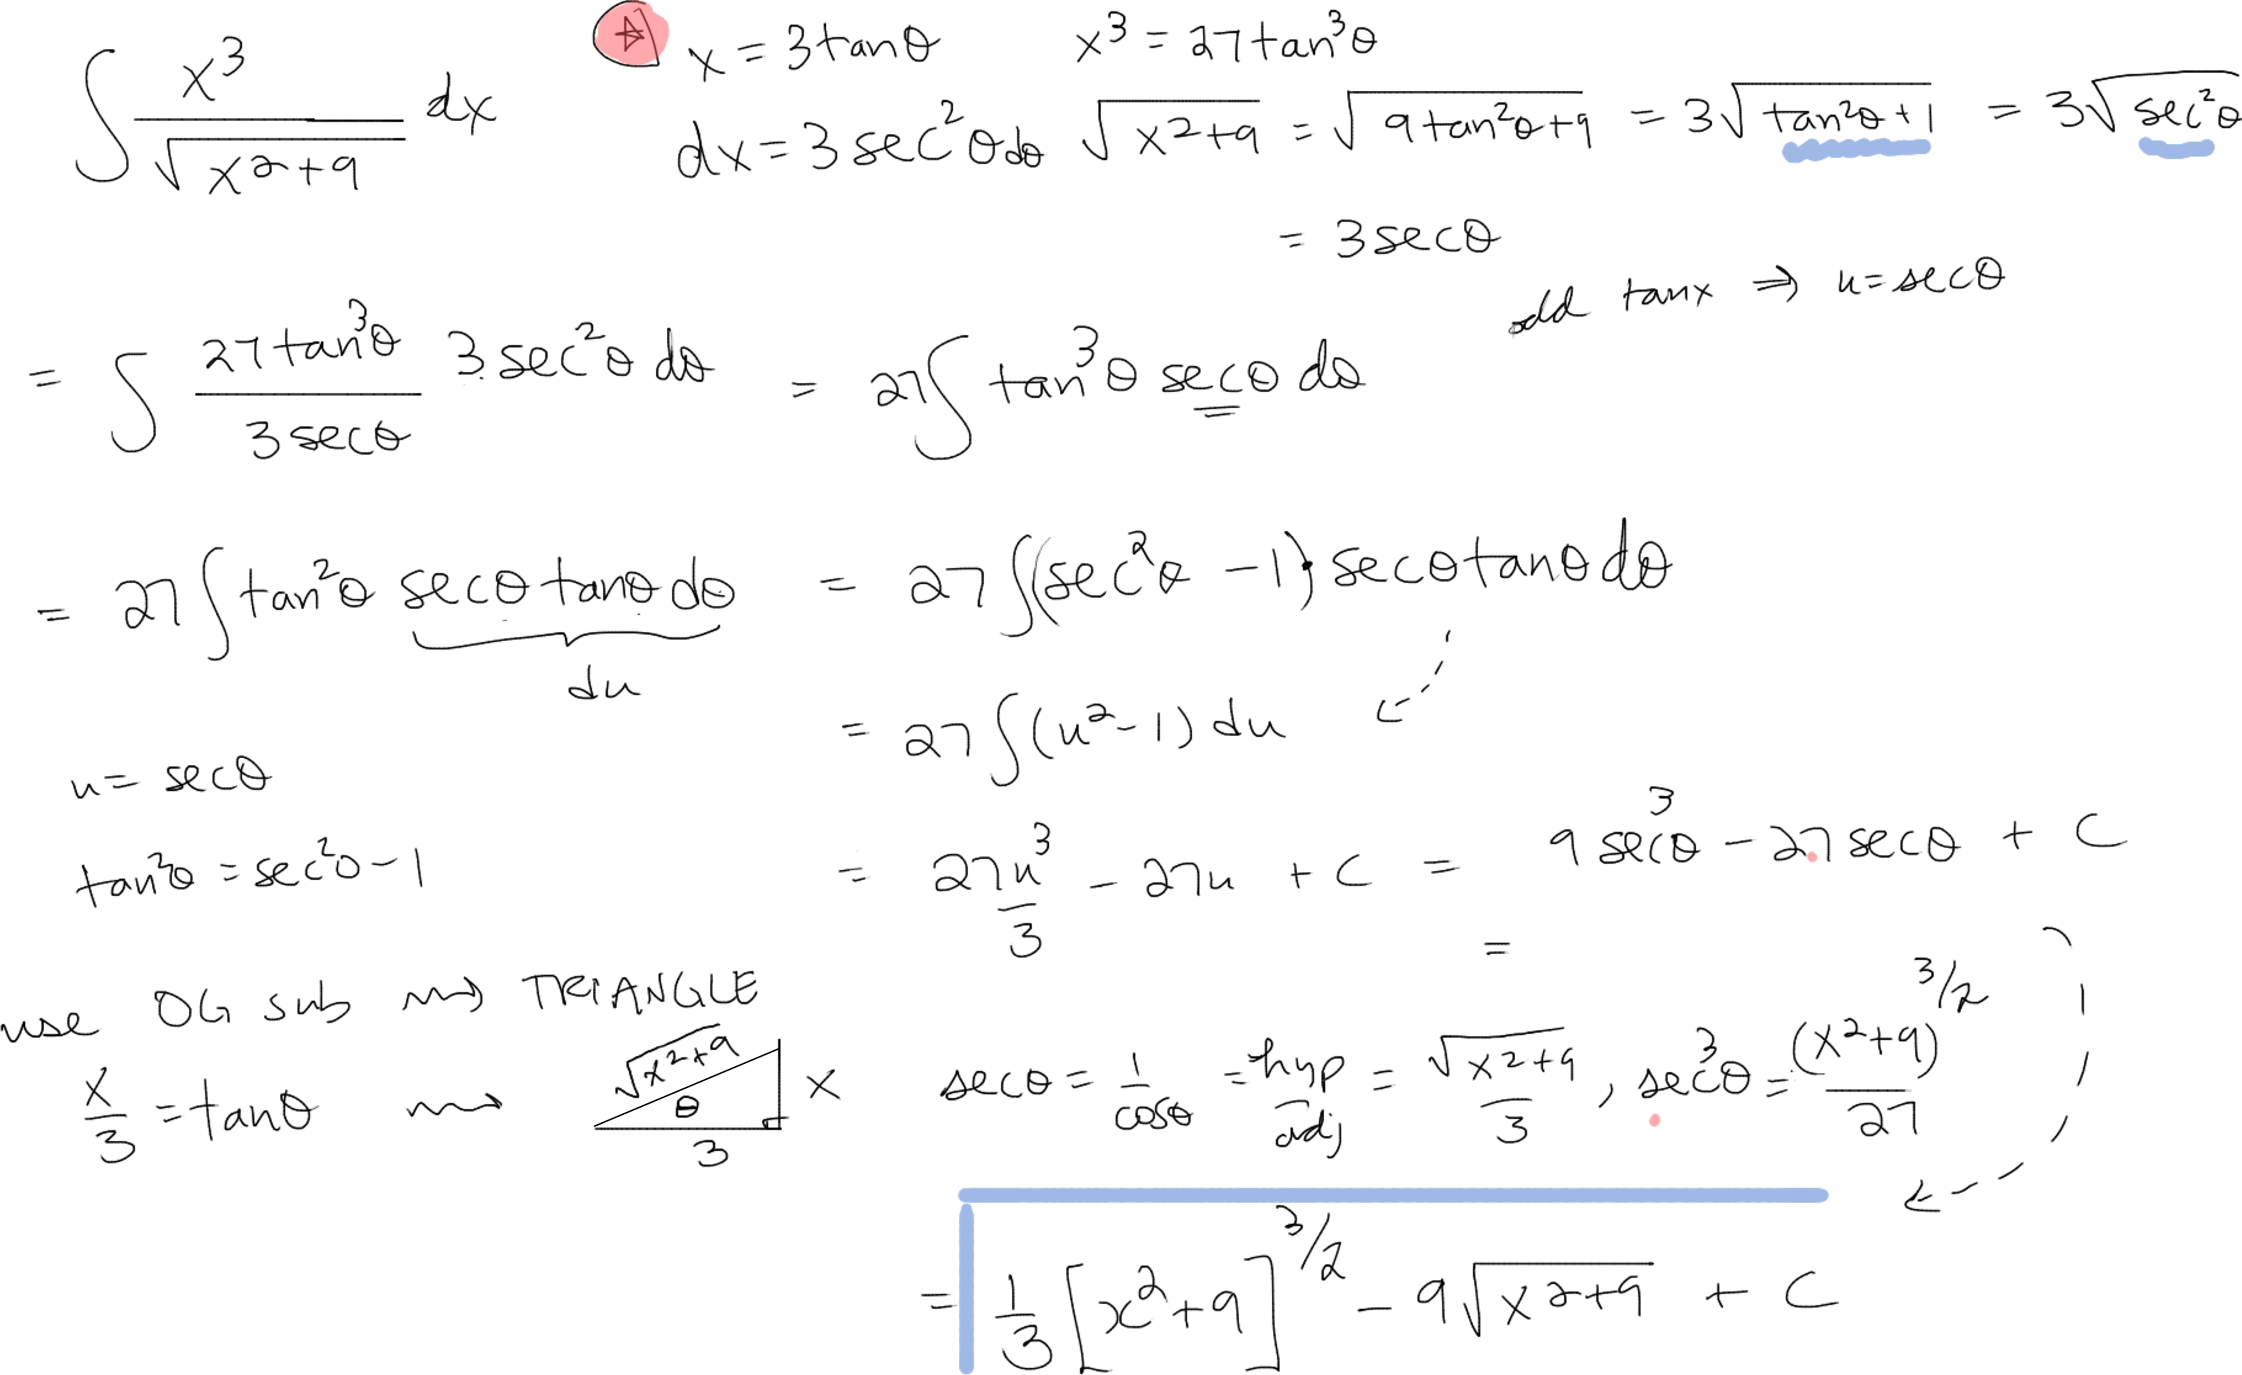 ∫ x³/√(x²+9) dx   x = 3tanθ   x³ = 27tan³θ
dx = 3sec²θdθ   √(x²+9) = √(9tan²θ+9) = 3√(tan²θ+1) = 3√(sec²θ)
= 3secθ
odd tanx ⇒ u=secθ
= ∫ 27tan³θ/3secθ 3sec²θ dθ = 27∫ tan³θ secθ dθ
= 27∫tan²θ secθtanθdθ = 27∫(sec²θ -1) secθtanθdθ
du
= 27∫(u²-1) du
u= secθ
tan²θ = sec²θ-1
= 27u³/3 - 27u + C = 9sec³θ - 27secθ + C
=
use OG sub ⇝ TRIANGLE
x/3 = tanθ ⇝ √(x²+9) θ x 3
secθ = 1/cosθ = hyp/adj = √(x²+9)/3 , sec³θ = (x²+9)^3/2/27
= 1/3 [x²+9]^3/2 - 9√(x²+9) + C